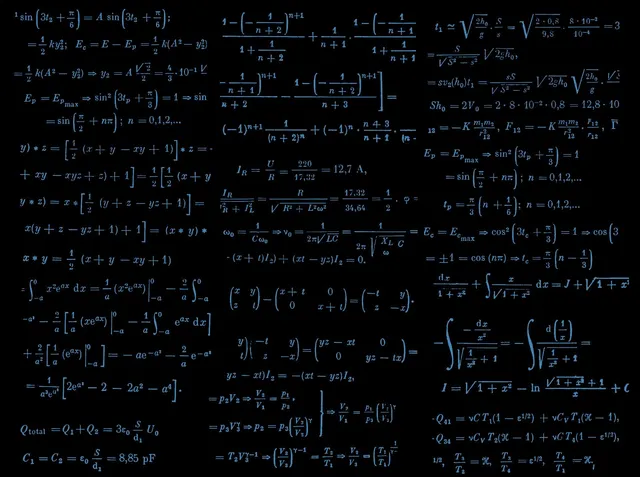 ¹ sin (3t₂ + π/6) = A sin (3t₂ + π/6);
= 1/2 ky₂²; E_c = E − E_p = 1/2 k(A² − y₂²)
= 1/2 k(A² − y₂²) ⇒ y₂ = A√2/2 = 4/3 · 10⁻¹
E_p = E_p max ⇒ sin² (3t_p + π/3) = 1 ⇒ sin
= sin (π/2 + nπ); n = 0,1,2,...
y) * z = [1/2 (x + y − xy + 1)] * z =
+ xy − xyz + z) + 1] = 1/2 [1/2 (x + y
y * z) = x * [1/2 (y + z − yz + 1)] =
x(y + z − yz + 1) + 1] = (x * y) *
x * y = 1/2 (x + y − xy + 1)
= ∫₋ₐ⁰ x²eᵃˣ dx = 1/a (x²eᵃˣ)|₋ₐ⁰ − 2/a ∫₋ₐ⁰
− 2/a [1/a (xeᵃˣ)|₋ₐ⁰ − 1/a ∫₋ₐ⁰ eᵃˣ dx]
+ 2/a² [1/a (eᵃˣ)|₋ₐ⁰] = −ae⁻ᵃ² − 2/a e⁻ᵃ²
[2eᵃ² − 2 − 2a² − a⁴].
Q_total = Q₁ + Q₂ = 3ε₀ S/d₁ U₀
C₁ = C₂ = ε₀ S/d₁ = 8,85 pF
1 − (− 1/(n + 2))ⁿ⁺¹ / (1 + 1/(n + 1)) + 1/(n + 1) · 1 − (− 1/(n + 1)) / (1 + 1/(n + 1))
(− 1/(n + 1))ⁿ⁺¹ / (n + 2) − 1 − (− 1/(n + 2))ⁿ⁺¹ / (n + 3) ] =
(−1)ⁿ⁺¹ 1/(n + 2)ⁿ + (−1)ⁿ · (n + 3)/(n + 1) · (n
I_R = U/R = 220/17,32 = 12,7 A,
I_R / √(I_R² + I_L²) = R / √(R² + L²ω²) = 17,32/34,64 = 1/2 . φ =
ω₀ = 1/(Cω₀) ⇒ ν₀ = 1/(2π√LC) = 1/(2π √(X_L C/ω))
· (x + t)I₂) + (xt − yz)I₂ = 0.
(x y z t) − (x + t 0 0 x + t) = (−t y z −x).
y)(−t y z −x) = (yz − xt 0 0 yz − tx) =
yz − xt)I₂ = −(xt − yz)I₂,
= p₂V₂ ⇒ V₂/V₁ = p₁/p₂
= p₂V₂^γ ⇒ p₂ = p₃ (V₃/V₂)^γ } ⇒ V₂/V₁ = p₁/p₃ (V₂/V₃)^γ
= T₂V₃^γ⁻¹ ⇒ (V₃/V₂)^γ⁻¹ = T₂/T₁ ⇒ V₃/V₂ = (T₂/T₁)
t₁ ≃ √(2h₀/g) · S/s = √(2 · 0,8/9,8) · 8 · 10⁻²/10⁻⁴ = 3
= S/√(S² − s²) √(2gh₀),
= sv₂(h₀)t₁ = sS/√(S² − s²) √(2gh₀) √(2h₀/g) ·
Sh₀ = 2V₀ = 2 · 8 · 10⁻² · 0,8 = 12,8 · 10
₁₂ = −K m₁m₂/r₁₂², F₁₂ = −K m₁m₂/r₁₂² · r₁₂/r₁₂,
E_p = E_p max ⇒ sin² (3t_p + π/3) = 1
= sin (π/2 + nπ); n = 0,1,2,...
t_p = π/3 (n + 1/6); n = 0,1,2,...
E_c = E_c max ⇒ cos² (3t_c + π/3) = 1 ⇒ cos (3
= ±1 = cos (nπ) ⇒ t_c = π/3 (n − 1/3)
dx / √(1 + x²) + ∫ x/√(1 + x²) dx = J + √(1 + x²
− ∫ (− dx/x²) / √(1/x² + 1) = − ∫ d(1/x) / √(1/x² + 1) =
I = √(1 + x²) − ln (√(1 + x²) + 1)/x + C
· Q₄₁ = νCT₁(1 − ε¹ᐟ²) + νC_V T₁(ϰ − 1),
· Q₃₄ = νC_V T₂(ϰ − 1) + νCT₄(1 − ε¹ᐟ²),
¹ᐟ², T₄/T₁ = ϰ, T₃/T₄ = ε¹ᐟ², T₄/T₁ = ϰ,